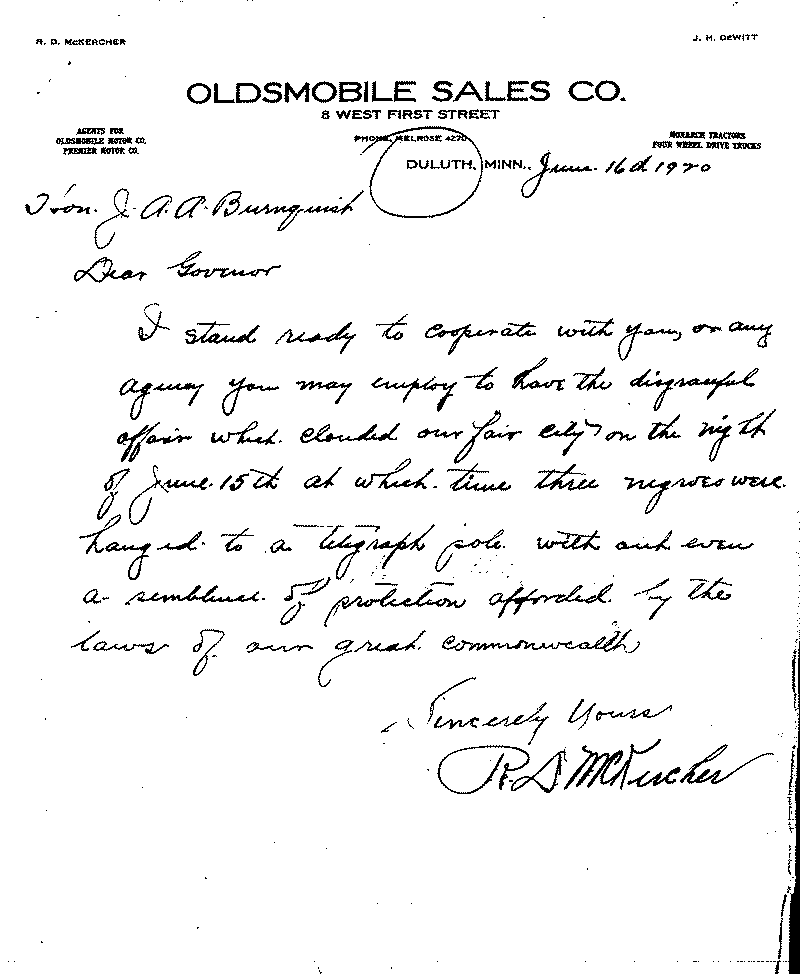 R. D. McKERCHER
J. H. DeWITT
OLDSMOBILE SALES CO.
8 WEST FIRST STREET
AGENTS FOR
OLDSMOBILE MOTOR CO.
PREMIER MOTOR CO.
PHONE, MELROSE 4270
MONARCH TRACTORS
FOUR WHEEL DRIVE TRUCKS
DULUTH, MINN., June 16th 1920
Hon. J. A. A. Burnquist
Dear Govenor
I stand ready to cooperate with you, or any
agency you may employ to have the disgraceful
affair which clouded our fair city on the night
of June 15th at which time three negroes were
hanged to a telegraph pole with out even
a semblence of protection afforded by the
laws of our great commonwealth
Sincerely Yours
R. D. McKercher